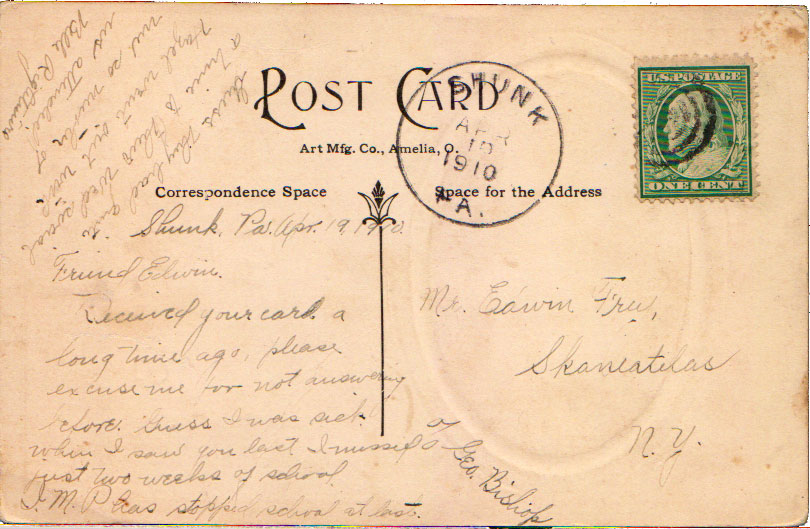 POST CARD
Art Mfg. Co., Amelia, O.
Correspondence Space
Space for the Address
SHUNK
APR
1910
PA.
U.S. POSTAGE
ONE CENT
Shunk, Pa. Apr. 19, 1910.
Friend Edwin.
Received your card a
long time ago, please
excuse me for not answering
before. Guess I was sick
when I saw you last. I missed
just two weeks of school.
I. M. P. has stopped school at last.
Guess they had quite
a time to
Hazel went out with
us
Mr. Edwin Frey,
Skaneatelas
N.Y.
Geo. Bishop